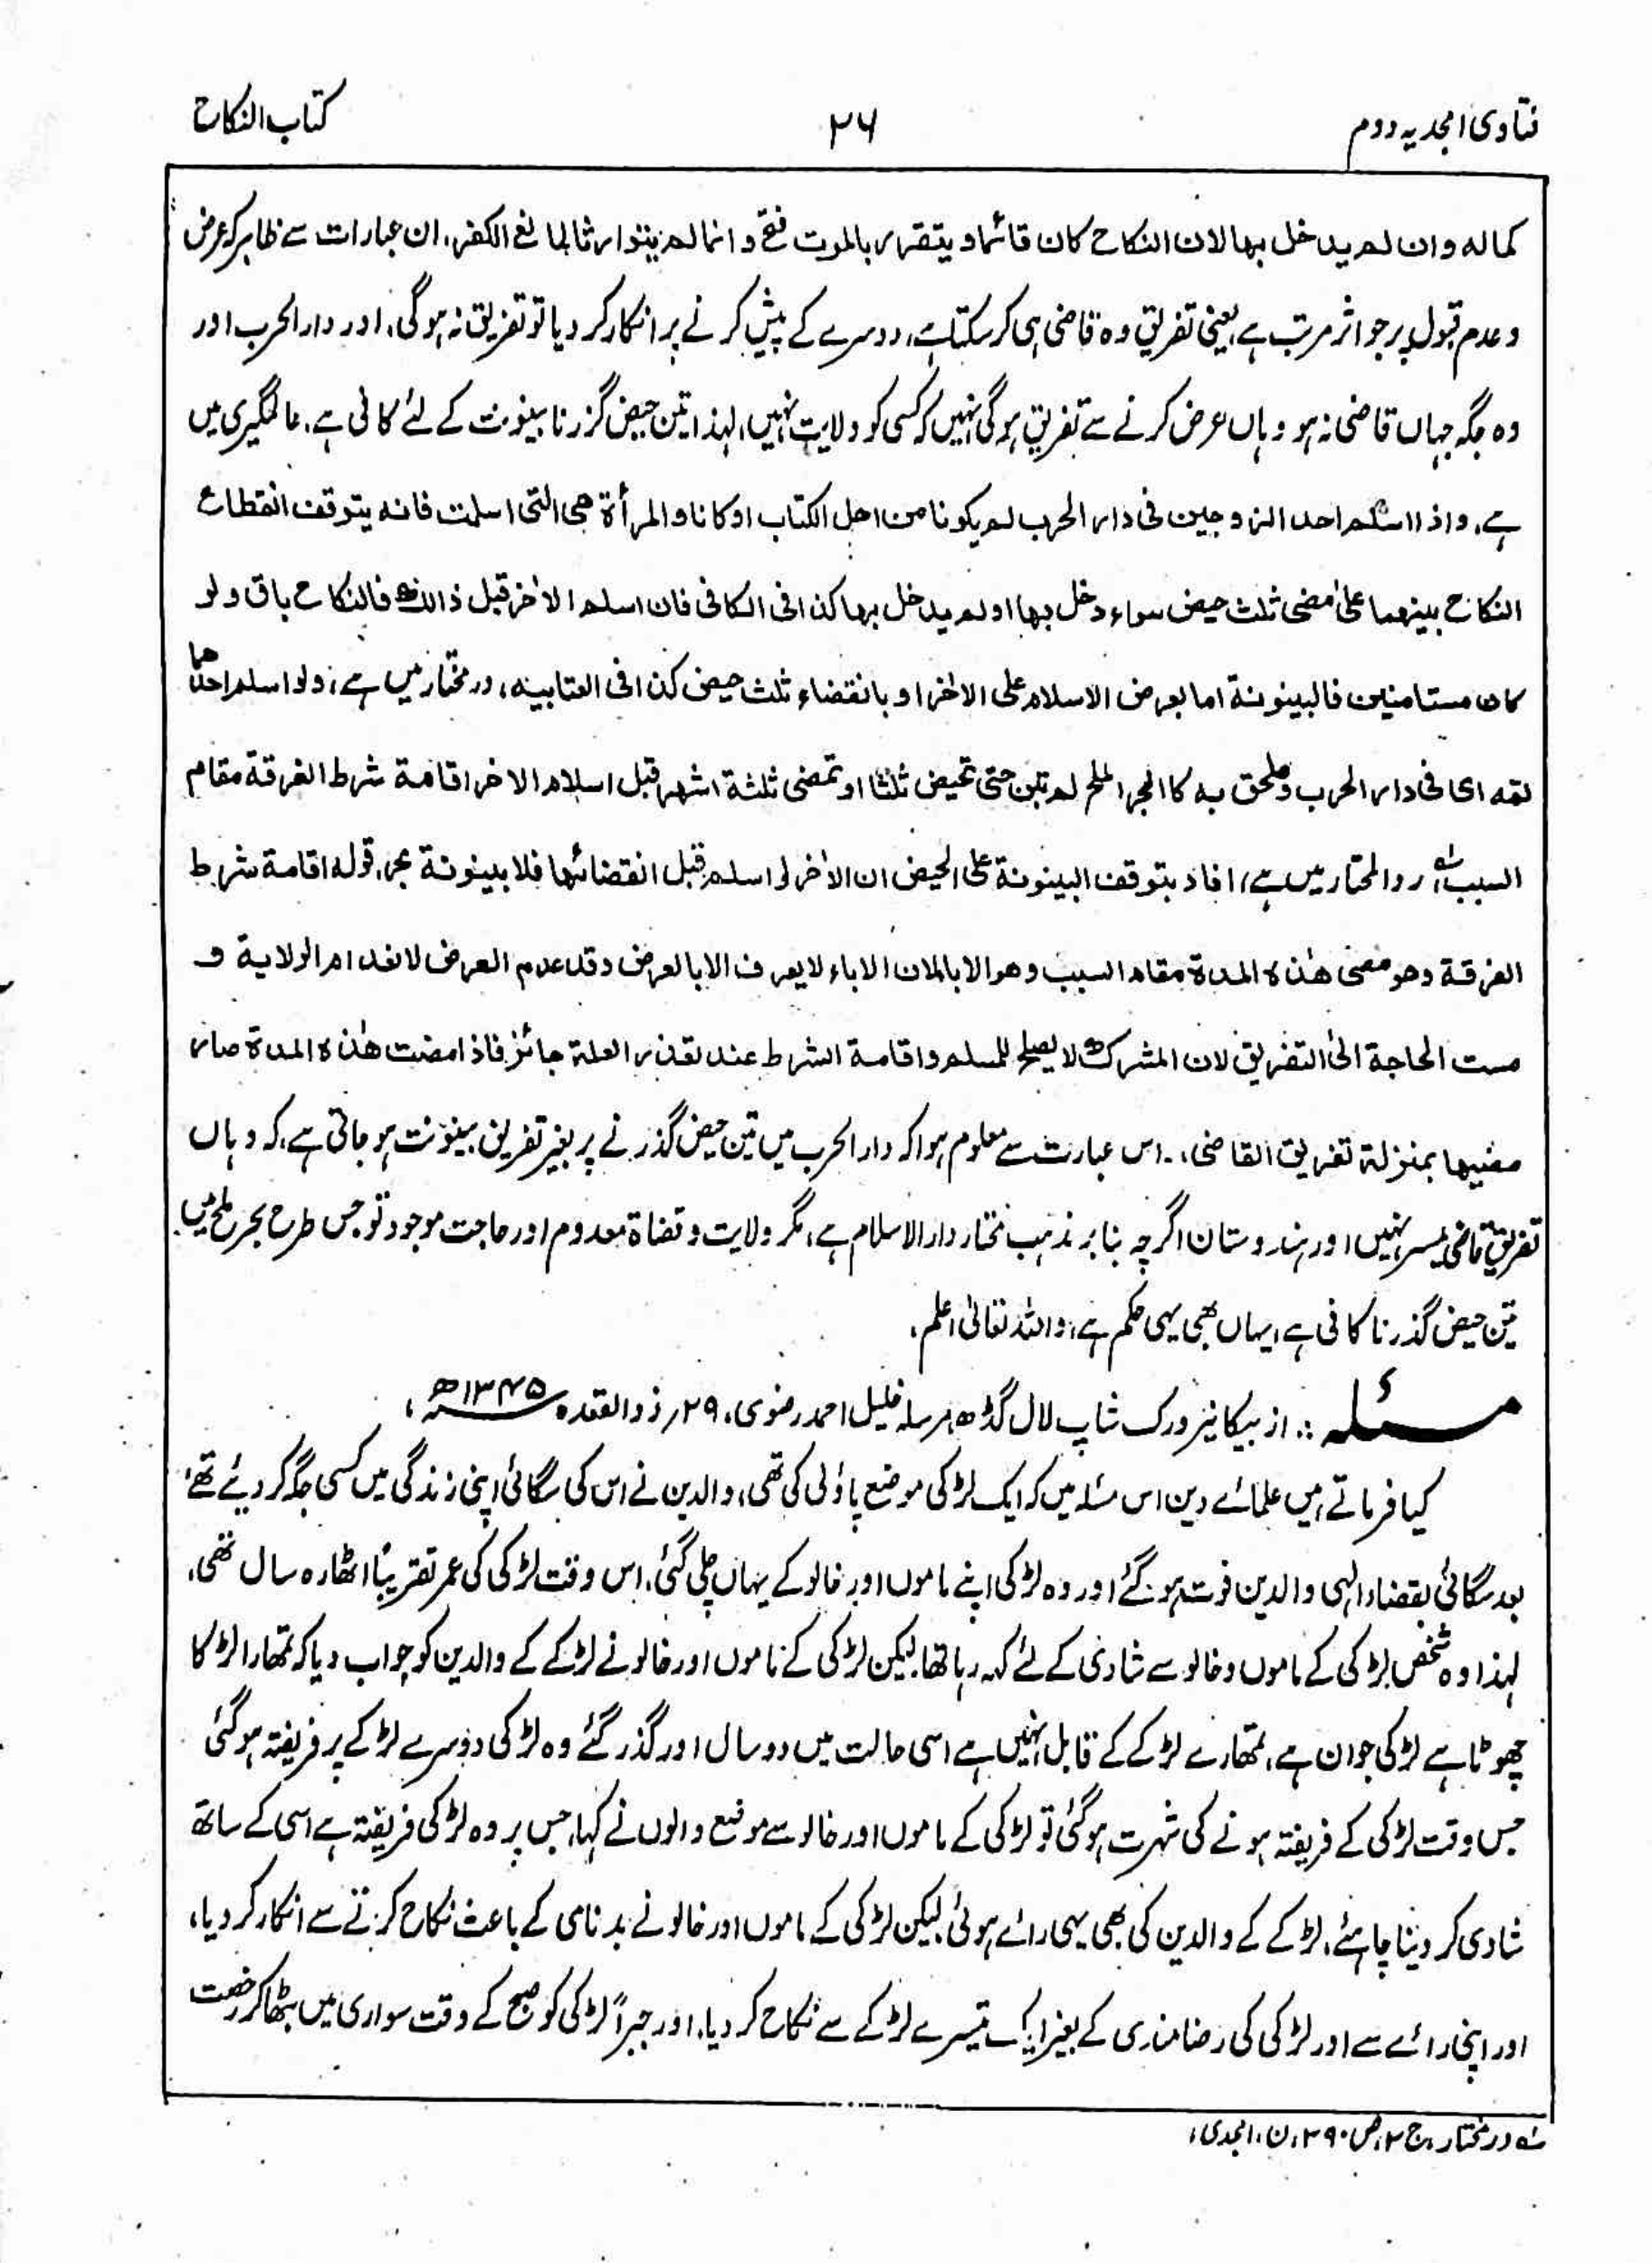 فتاوی امجدیہ دوم
۲۶
کتاب النکاح
کمالہ وان لم یدخل بہا لان النکاح کان قائما و یتقرر بالموت فتح و انما لم یتوارثا لمانع الکفر، ان عبارات سے ظاہر کہ عرض
و عدم قبول پر جو اثر مرتب ہے یعنی تفریق وہ قاضی ہی کرسکتا ہے، دوسرے کے پیش کرنے پر انکار کر دیا تو تفریق نہ ہوگی، اور دار الحرب اور
وہ جگہ جہاں قاضی نہ ہو وہاں عرض کرنے سے تفریق ہوگی نہیں کہ کسی کو ولایت نہیں، لہذا تین حیض گزرنا بینونت کے لئے کافی ہے، عالمگیری میں
ہے، واذا اسلم احد الزوجین فی دار الحرب لم یکونا من اہل الکتاب او کانا والمرأۃ ھی التی اسلمت فانہ یتوقف انقطاع
النکاح بینھما علیٰ مضی ثلث حیض سواء دخل بھا او لم یدخل بہا کذا فی الکافی فان اسلم الاٰخر قبل ذالک فالنکاح باق ولو
کان مستامنین فالبینونۃ اما بعرض الاسلام علی الاٰخر او بانقضاء ثلث حیض کذا فی العتابیہ، در مختار میں ہے، ولو اسلم احدھما
ثمہ ای فی دار الحرب وملحق بہ کالبحر الملح لم تبن حتی تحیض ثلثا او تمضی ثلثۃ اشھر قبل اسلام الاٰخر اقامۃ شرط الفرقۃ مقام
السبب ؎۱ رد المحتار میں ہے، افاد بتوقف البینونۃ علی الحیض ان الاٰخر لو اسلم قبل انقضائھا فلا بینونۃ بحر، قولہ اقامۃ شرط
الفرقۃ وھو مضی ھٰذہ المدۃ مقام السبب وھو الاباء لان الاباء لا یعرف الا بالعرض وقد عدم العرض لانعدام الولایۃ و
مست الحاجۃ الیٰ التفریق لان المشرک لا یصلح للمسلم واقامۃ الشرط عند تعذر العلۃ جائز فاذا مضت ھٰذہ المدۃ صار
مضیھا بمنزلۃ تفریق القاضی، اس عبارت سے معلوم ہوا کہ دار الحرب میں تین حیض گذرنے پر بغیر تفریق بینونت ہو جاتی ہے، کہ وہاں
تفریق قاضی میسر نہیں اور ہندوستان اگرچہ بنا بر مذہب مختار دار الاسلام ہے، مگر ولایت و قضاۃ معدوم اور حاجت موجود تو جس طرح بحر ملح میں
تین حیض گذرنا کافی ہے، یہاں بھی یہی حکم ہے، واللہ تعالیٰ اعلم،
مسئلہ :۔ از بیکانیر ورک شاپ لال گڈھ مرسلہ خلیل احمد رضوی، ۲۹ ذوالقعدہ ۱۳۴۵ھ،
کیا فرماتے ہیں علمائے دین اس مسئلہ میں کہ ایک لڑکی موضع پاؤلی کی تھی، والدین نے اس کی سگائی اپنی زندگی میں کسی جگہ کر دیئے تھے،
بعد سگائی بقضاء الہی والدین فوت ہو گئے اور وہ لڑکی اپنے ماموں اور خالو کے یہاں چلی گئی، اس وقت لڑکی کی عمر تقریباً اٹھارہ سال تھی،
لہذا وہ شخص لڑکی کے ماموں و خالو سے شادی کے لئے کہہ رہا تھا، لیکن لڑکی کے ماموں اور خالو نے لڑکے کے والدین کو جواب دیا کہ تمھارا لڑکا
چھوٹا ہے لڑکی جوان ہے، تمھارے لڑکے کے قابل نہیں ہے اسی حالت میں دو سال اور گذر گئے وہ لڑکی دوسرے لڑکے پر فریفتہ ہو گئی
جس وقت لڑکی کے فریفتہ ہونے کی شہرت ہو گئی تو لڑکی کے ماموں اور خالو سے موضع والوں نے کہا، جس پر وہ لڑکی فریفتہ ہے اسی کے ساتھ
شادی کر دینا چاہئے، لڑکے کے والدین کی بھی یہی رائے ہوئی، لیکن لڑکی کے ماموں اور خالو نے بدنامی کے باعث نکاح کرنے سے انکار کر دیا،
اور اپنی رائے سے اور لڑکی کی رضامندی کے بغیر ایک تیسرے لڑکے سے نکاح کر دیا، اور جبراً لڑکی کو صبح کے وقت سواری میں بٹھا کر رخصت
؎۱ در مختار، ج ۲، ص ۳۹۰، ن، امجدی،